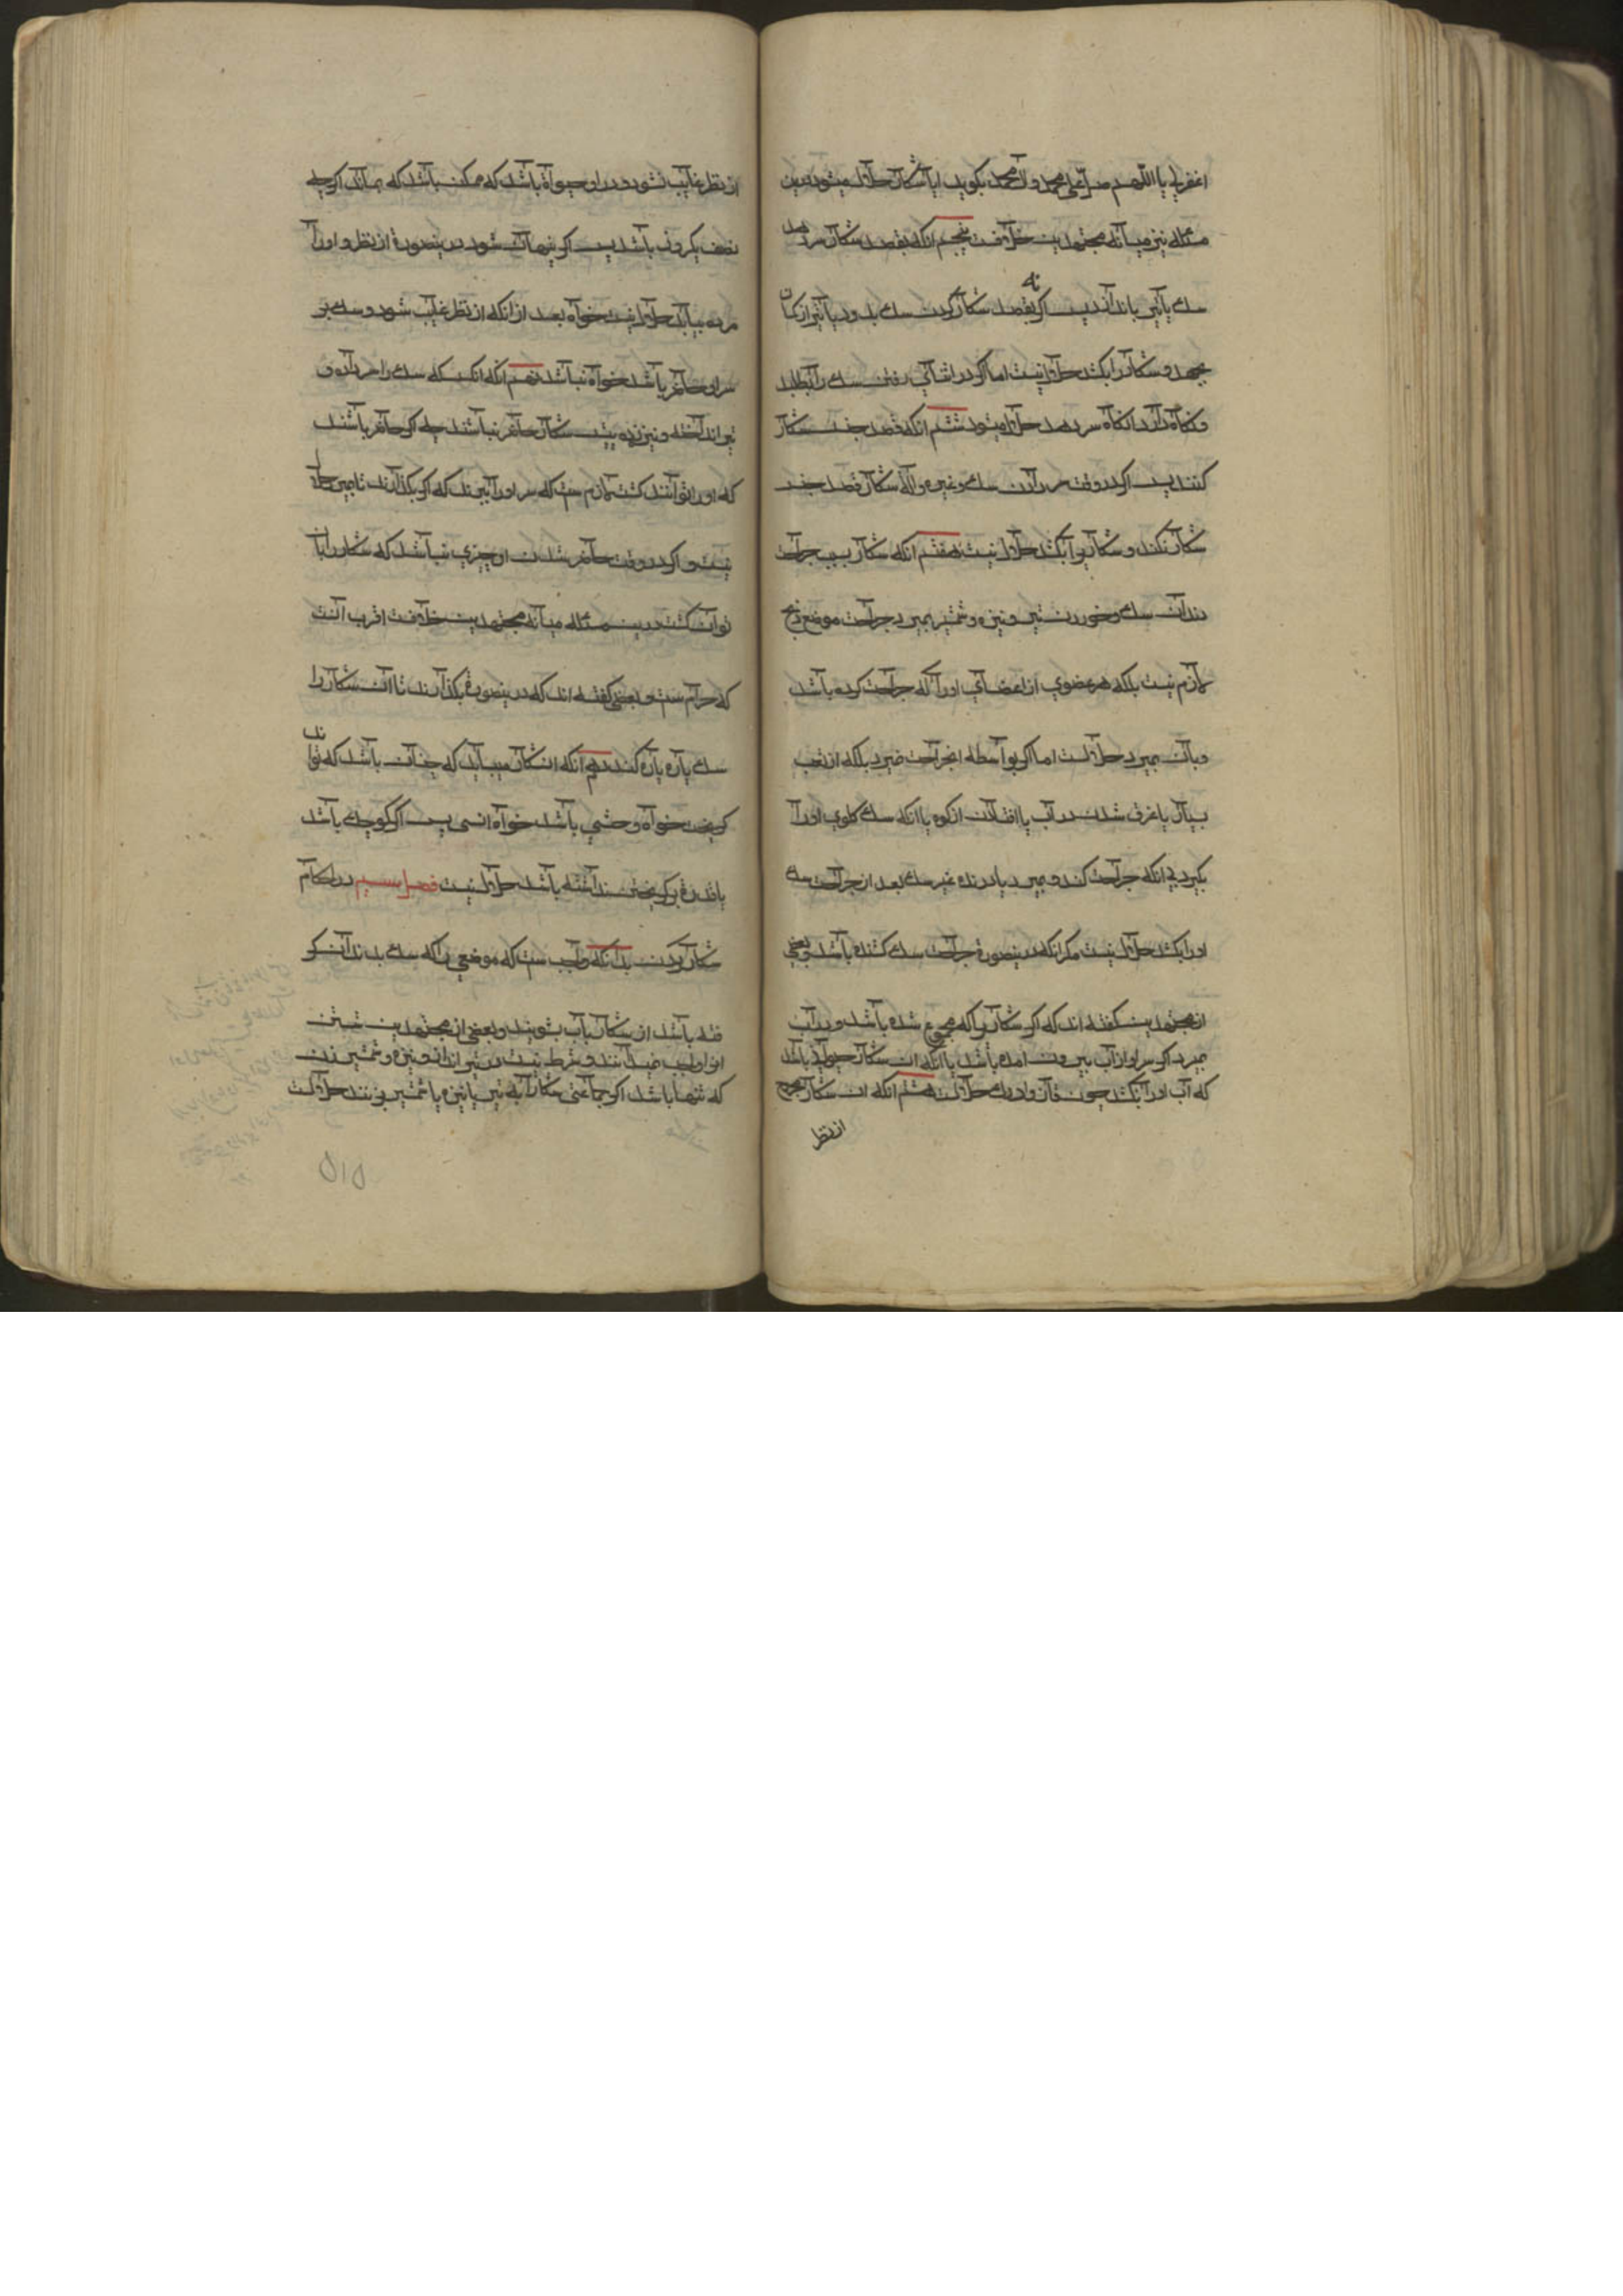 اغفرلی یا اللهم صل علی محمد وال محمد بکوید ایا شکار حلال میشود درین
مسئله نیز میانه مجتهدین خلافست پنجم انکه بقصد شکار سر دهد
سک یا تیر باندازد پس اکر نه بقصد شکار کردن سک بدود یا تیر از کمان
بجهد و شکار را بکشد حلال نیست اما اکر در اثنای رفتن سک را بطلبد
ونکاه دارد انکاه سر دهد حلال میشود ششم انکه قصد جنس شکار
کنند پس اکر در وقت سر دادن سک وغیره والة شکار قصد جنس
شکار نکند و شکار برا بکشد حلال نیست هفتم انکه شکار بسبب جراحت
دندان سک و خوردن تیر و نیزه و شمشیر بمیرد و جراحت موضع ذبح
لازم نیست بلکه هر عضوی از اعضای اورا که جراحت کرده باشد
وبان بمیرد حلالست اما اکر بواسطه انجراحت نمیرد بلکه از تعب
بسیار یا غرق شدن در آب یا افتادن از کوه یا انکه سک کلوی اورا
بکیرد بی انکه جراحت کند و بمیرد یا درنده غیر سک بعد از جراحت سک
اورا بکشد حلال نیست مکر انکه درینصورة جراحت سک کشنده باشد و بعضی
از مجتهدین کفته اند که اکر شکار برا که مجروح شده باشد و در آب
بمیرد اکر سر او از آب بیرون امده باشد یا انکه ان شکار حیوانی باشد
که آب اورا نکشد چون قاز واردک حلالست هشتم انکه ان شکار مجروح
از نظر
از نظر غایب نشود و در او حیوة باشد که ممکن باشد که بماند اکر چه
نصف یکروز باشد پس اکر پنهان شود درینصورة از نظر و اورا
مرده بیابد حلال نیست خواه بعد از انکه از نظر غایب شود و سک بر
سر او حاضر باشد خواه نباشد نهم انکه انکسکه سک را سر داده و
تیر انداخته و نیز زده پیش شکار حاضر نباشند چه اکر حاضر باشند
که اورا توانند کشت لازم ست که سر اورا ببرند که اکر بکذارند تا بمیرد حلال
نیست و اکر در وقت حاضر شدن او چیزی نباشد که شکار را بان
توان کشت درین مسئله میانه مجتهدین خلافست اقرب آنست
که حرام ست و بعضی کفته اند که درینصورة بکذارند تا ان شکار را
سک پاره پاره کند دهم انکه ان شکار میباید که چنان باشد که تواند
کریخت خواه وحشی باشد خواه انسی پس اکر کوچک باشد
یا قدرة بر کریختن نداشته باشد حلال نیست فصل سیم در احکام
شکار کردن بدانکه واجب ست که موضعی را که سک بدندان کر
فته باشد از شکار بآب بشویند و بعضی از مجتهدین شستن
انرا واجب نمیدانند و شرط نیست در تیر انداز و نیزه و شمشیر زدن
که تنها باشد اکر جماعتی شکار را به تیر یا نیزه یا شمشیر بزنند حلالست
۵۱۵